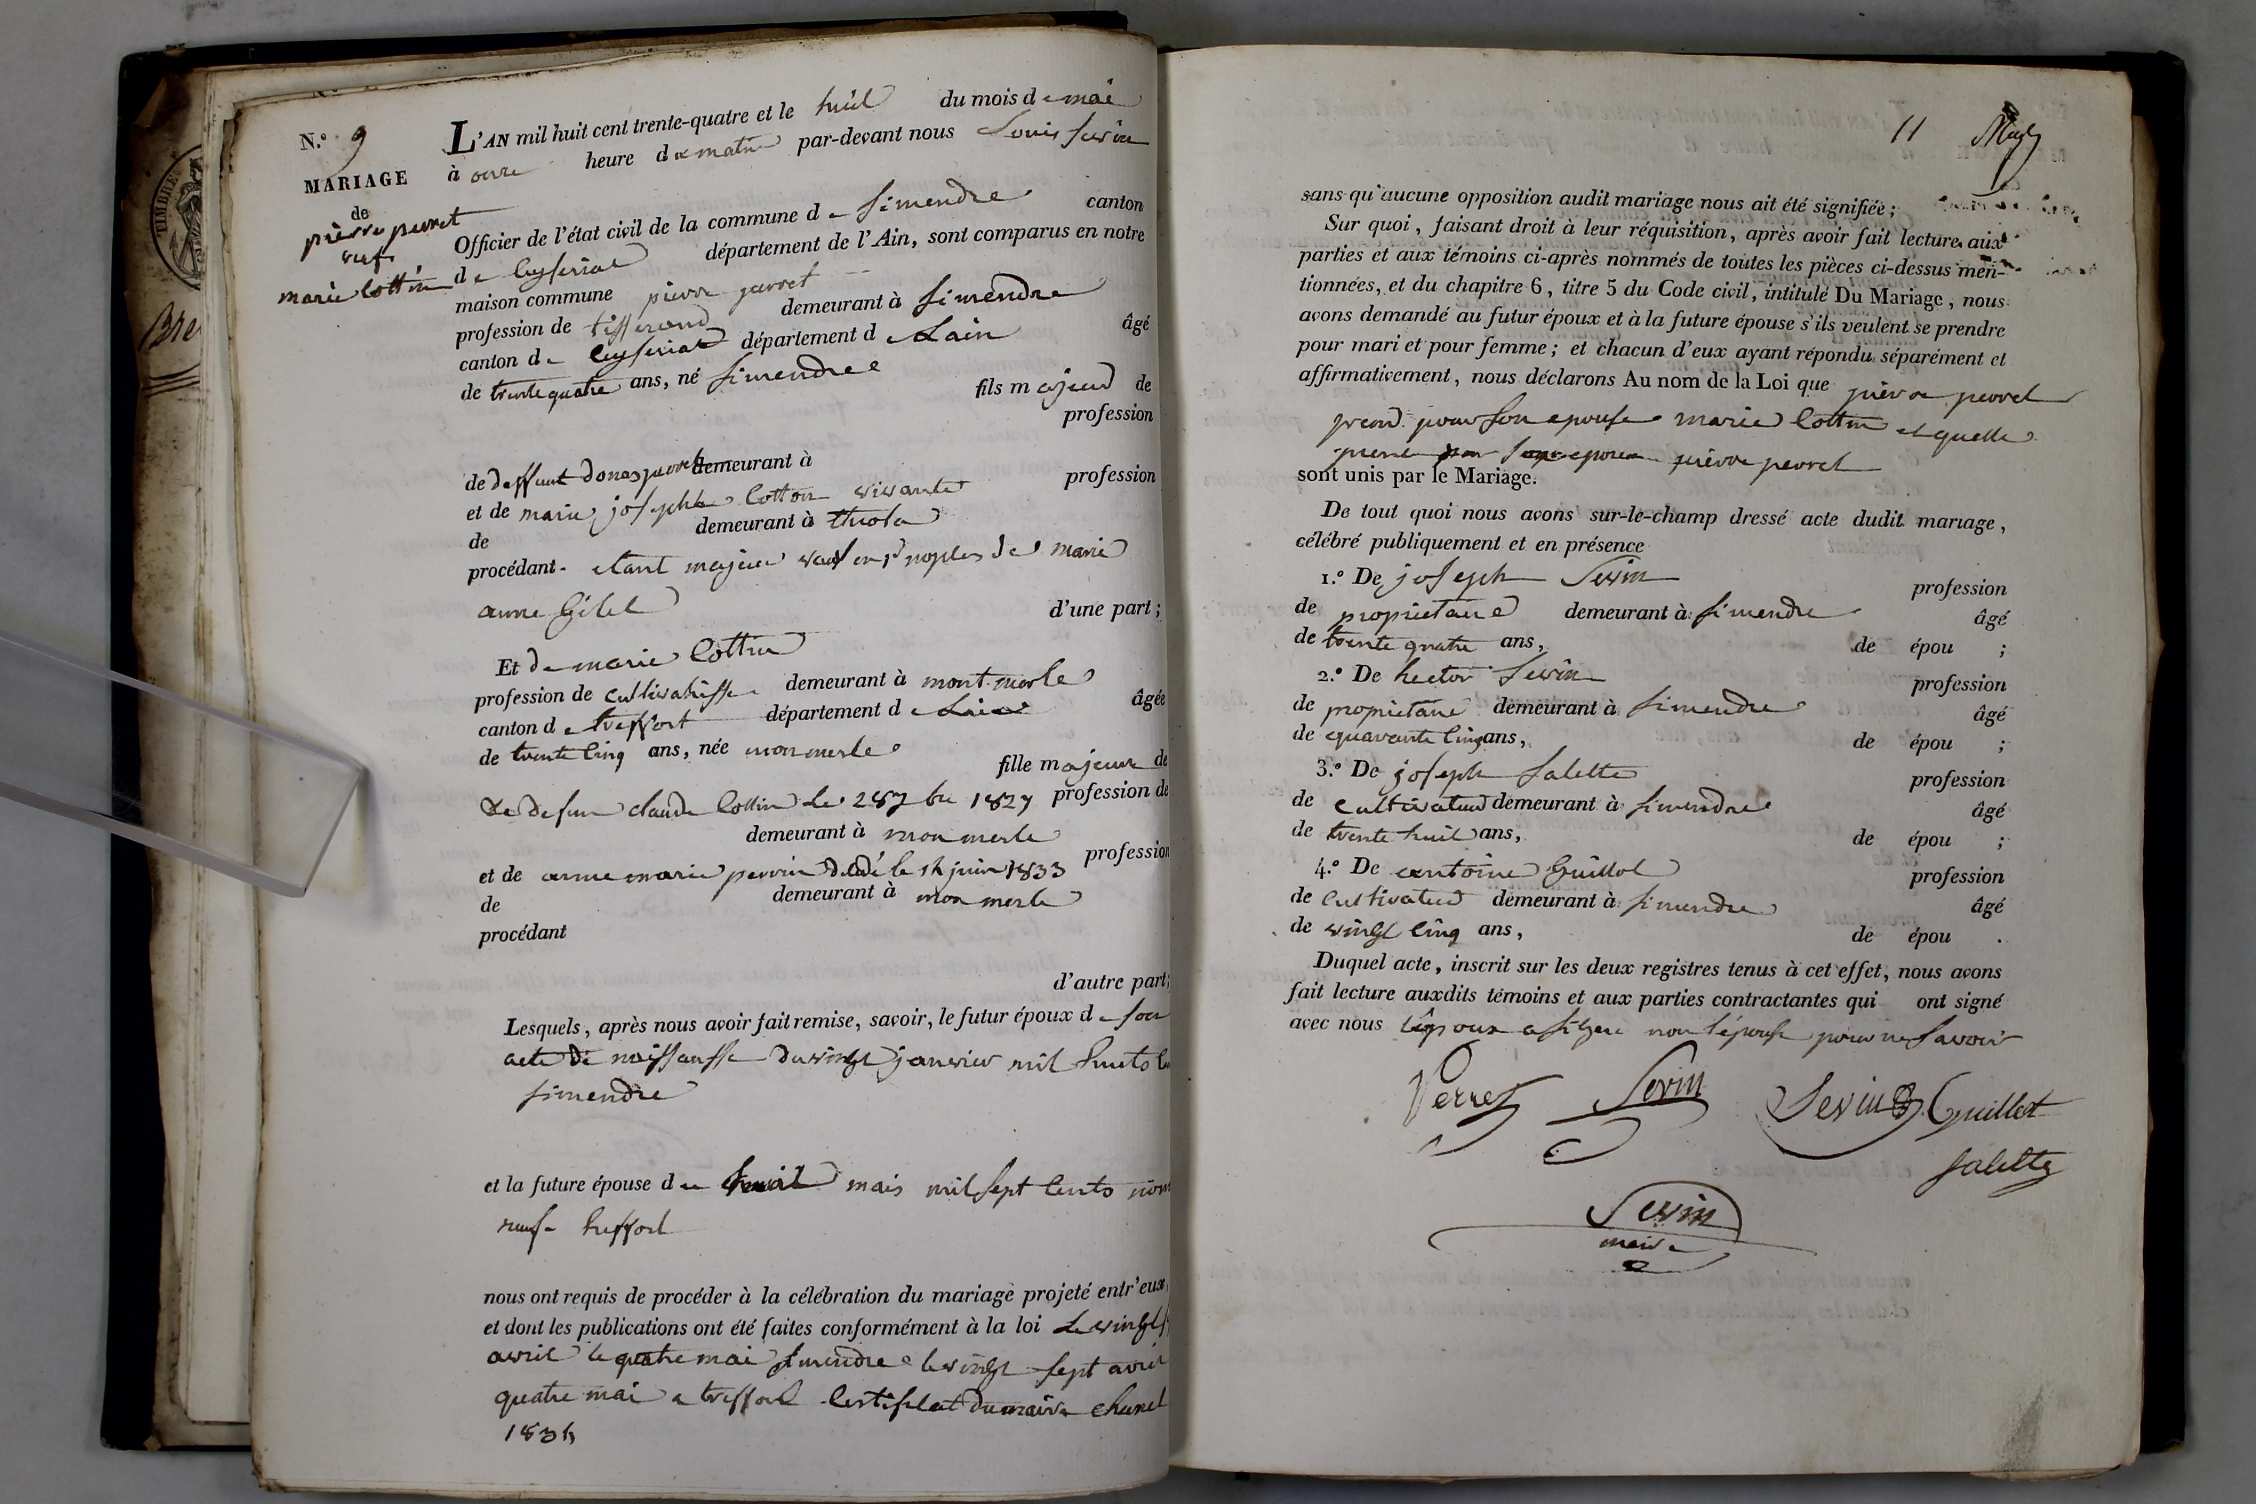 N.º 9
MARIAGE
de
pierre perret
veuf
marie Cottin
TIMBRE
Bre
L'AN mil huit cent trente-quatre et le huit du mois de mai
à onze heure de matin par-devant nous Louis Sevin
Officier de l'état civil de la commune de Simendre canton
de Ceyseriat département de l'Ain, sont comparus en notre
maison commune pierre perret
profession de tisserand demeurant à Simendre
canton de Ceyseriat département de Lain âgé
de trente quatre ans, né Simendre
fils majeur de
profession
de deffunt demeurant à
et de marie josephte Cotton vivante profession
de demeurant à
procédant etant majeur veuf en de marie
anne Gilet d'une part ;
Et de marie Cottin
profession de cultivatrisse demeurant à mont merle
canton de treffort département de Lain âgée
de trente cinq ans, née monmerle
fille majeure de
de defun claude Cottin le 28 7bre 1827 profession de
demeurant à monmerle
et de anne marie perrin dcdé le 14 juin 1833 profession
de demeurant à monmerle
procédant
d'autre part ;
Lesquels, après nous avoir fait remise, savoir, le futur époux de son
acte de naissansse du vingt janvier mil huit
Simendre
et la future épouse de huit mais mil sept cents
neuf treffort
nous ont requis de procéder à la célébration du mariage projeté entr'eux
et dont les publications ont été faites conformément à la loi Le vingt
avril le quatre mai Simendre le vingt sept avril
quatre mai a treffort Certificat du maire chanel
1834
11
sans qu'aucune opposition audit mariage nous ait été signifiée ;
Sur quoi, faisant droit à leur réquisition, après avoir fait lecture aux
parties et aux témoins ci-après nommés de toutes les pièces ci-dessus men-
tionnées, et du chapitre 6, titre 5 du Code civil, intitulé Du Mariage, nous
avons demandé au futur époux et à la future épouse s'ils veulent se prendre
pour mari et pour femme ; et chacun d'eux ayant répondu séparément et
affirmativement, nous déclarons Au nom de la Loi que pierre perret
prend pour son epouse marie Cottin et quelle
prend pour son epoux pierre perret
sont unis par le Mariage.
De tout quoi nous avons sur-le-champ dressé acte dudit mariage,
célébré publiquement et en présence
1.º De joseph Sevin profession
de propietaire demeurant à Simendre âgé
de trente quatre ans, de épou ;
2.º De hector Sevin profession
de propietaire demeurant à Simendre âgé
de quarante cinq ans, de épou ;
3.º De joseph Salette profession
de cultivateur demeurant à Simendre âgé
de trente huit ans, de épou ;
4.º De antoine Guillot profession
de cultivateur demeurant à Simendre âgé
de vingt cinq ans, de épou .
Duquel acte, inscrit sur les deux registres tenus à cet effet, nous avons
fait lecture auxdits témoins et aux parties contractantes qui ont signé
avec nous l'epoux a signe non l'epouse pour ne savoir
Perret Sevin Sevin Guillot
Salette
Sevin
maire